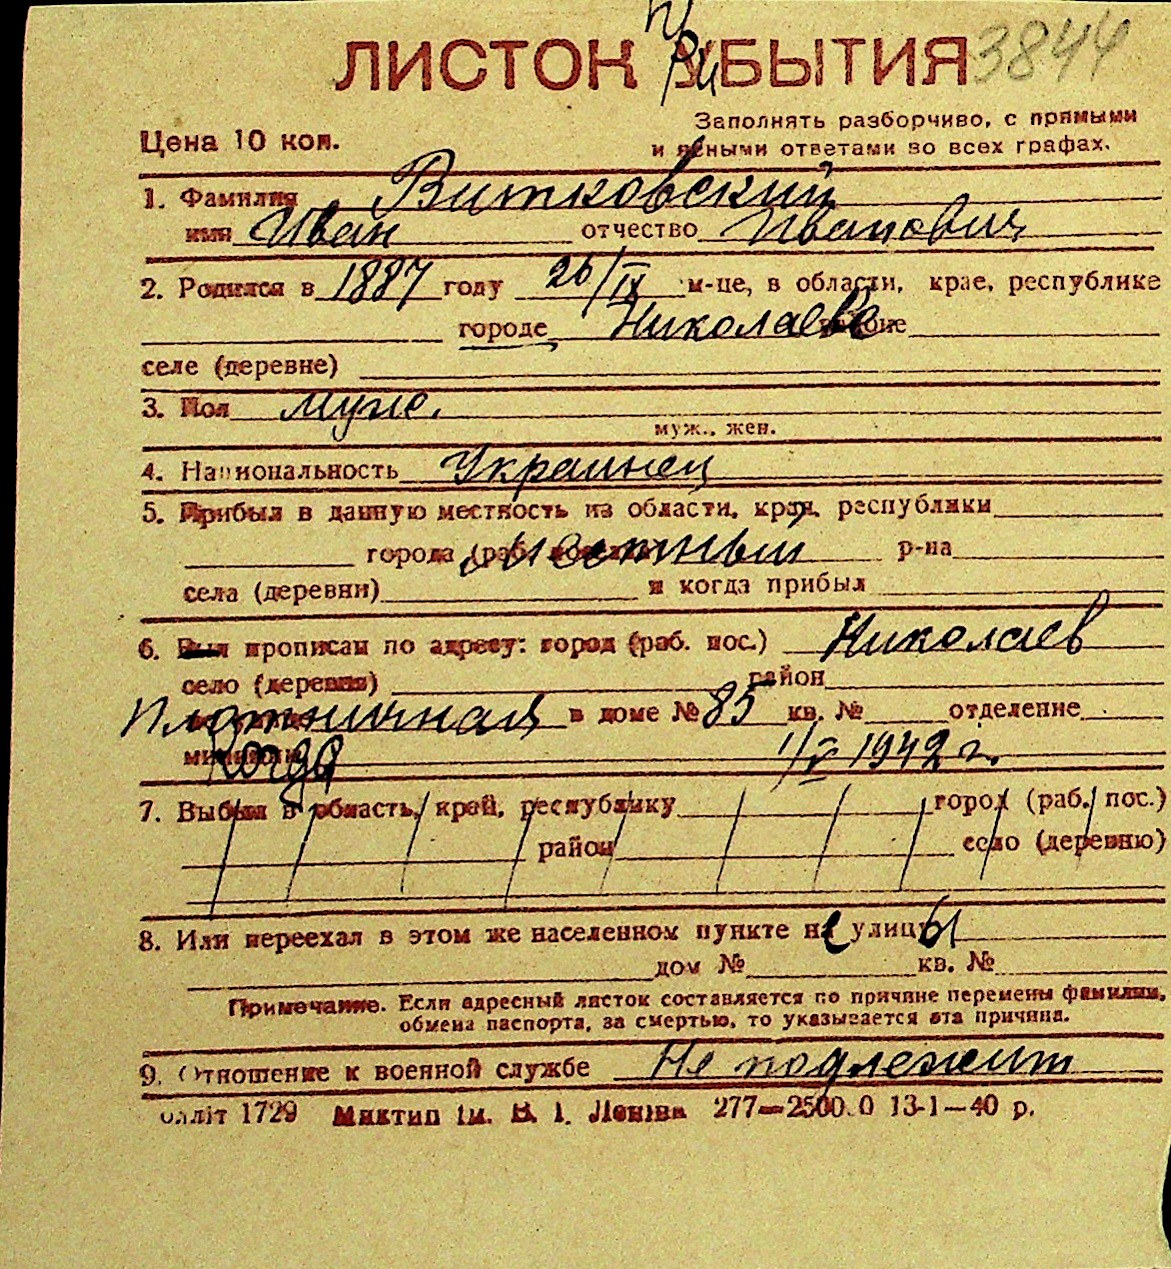 при 3844
ЛИСТОК УБЫТИЯ
Цена 10 коп.
Заполнять разборчиво, с прямыми
и ясными ответами во всех графах.
1. Фамилия Витковский
имя Иван отчество Иванович
2. Родился в 1887 году 26/IX м-це, в области, крае, республике
городе Николаеве районе
селе (деревне)
3. Пол муж.
муж., жен.
4. Национальность Украинец
5. Прибыл в данную местность из области, края, республики
города (раб. Местный р-на
села (деревни) и когда прибыл
6. Был прописан по адресу: город (раб. пос.) Николаев
село (деревня) район
Плотничная в доме № 85 кв. № отделение
милиции Когда 1/V 1942 г.
7. Выбыл в область, край, республику город (раб. пос.)
район село (деревню)
8. Или переехал в этом же населенном пункте не улицы
дом № кв. №
Примечание. Если адресный листок составляется по причине перемены фамилии,
обмена паспорта, за смертью, то указывается эта причина.
9. Отношение к военной службе Не подлежит
1729 Миктип ім. В. І. Леніна 277—2500.0 13-1—40 р.